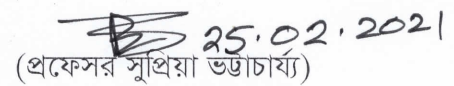 25.02.2021
(প্রফেসর সুপ্রিয়া ভট্টাচার্য্য)